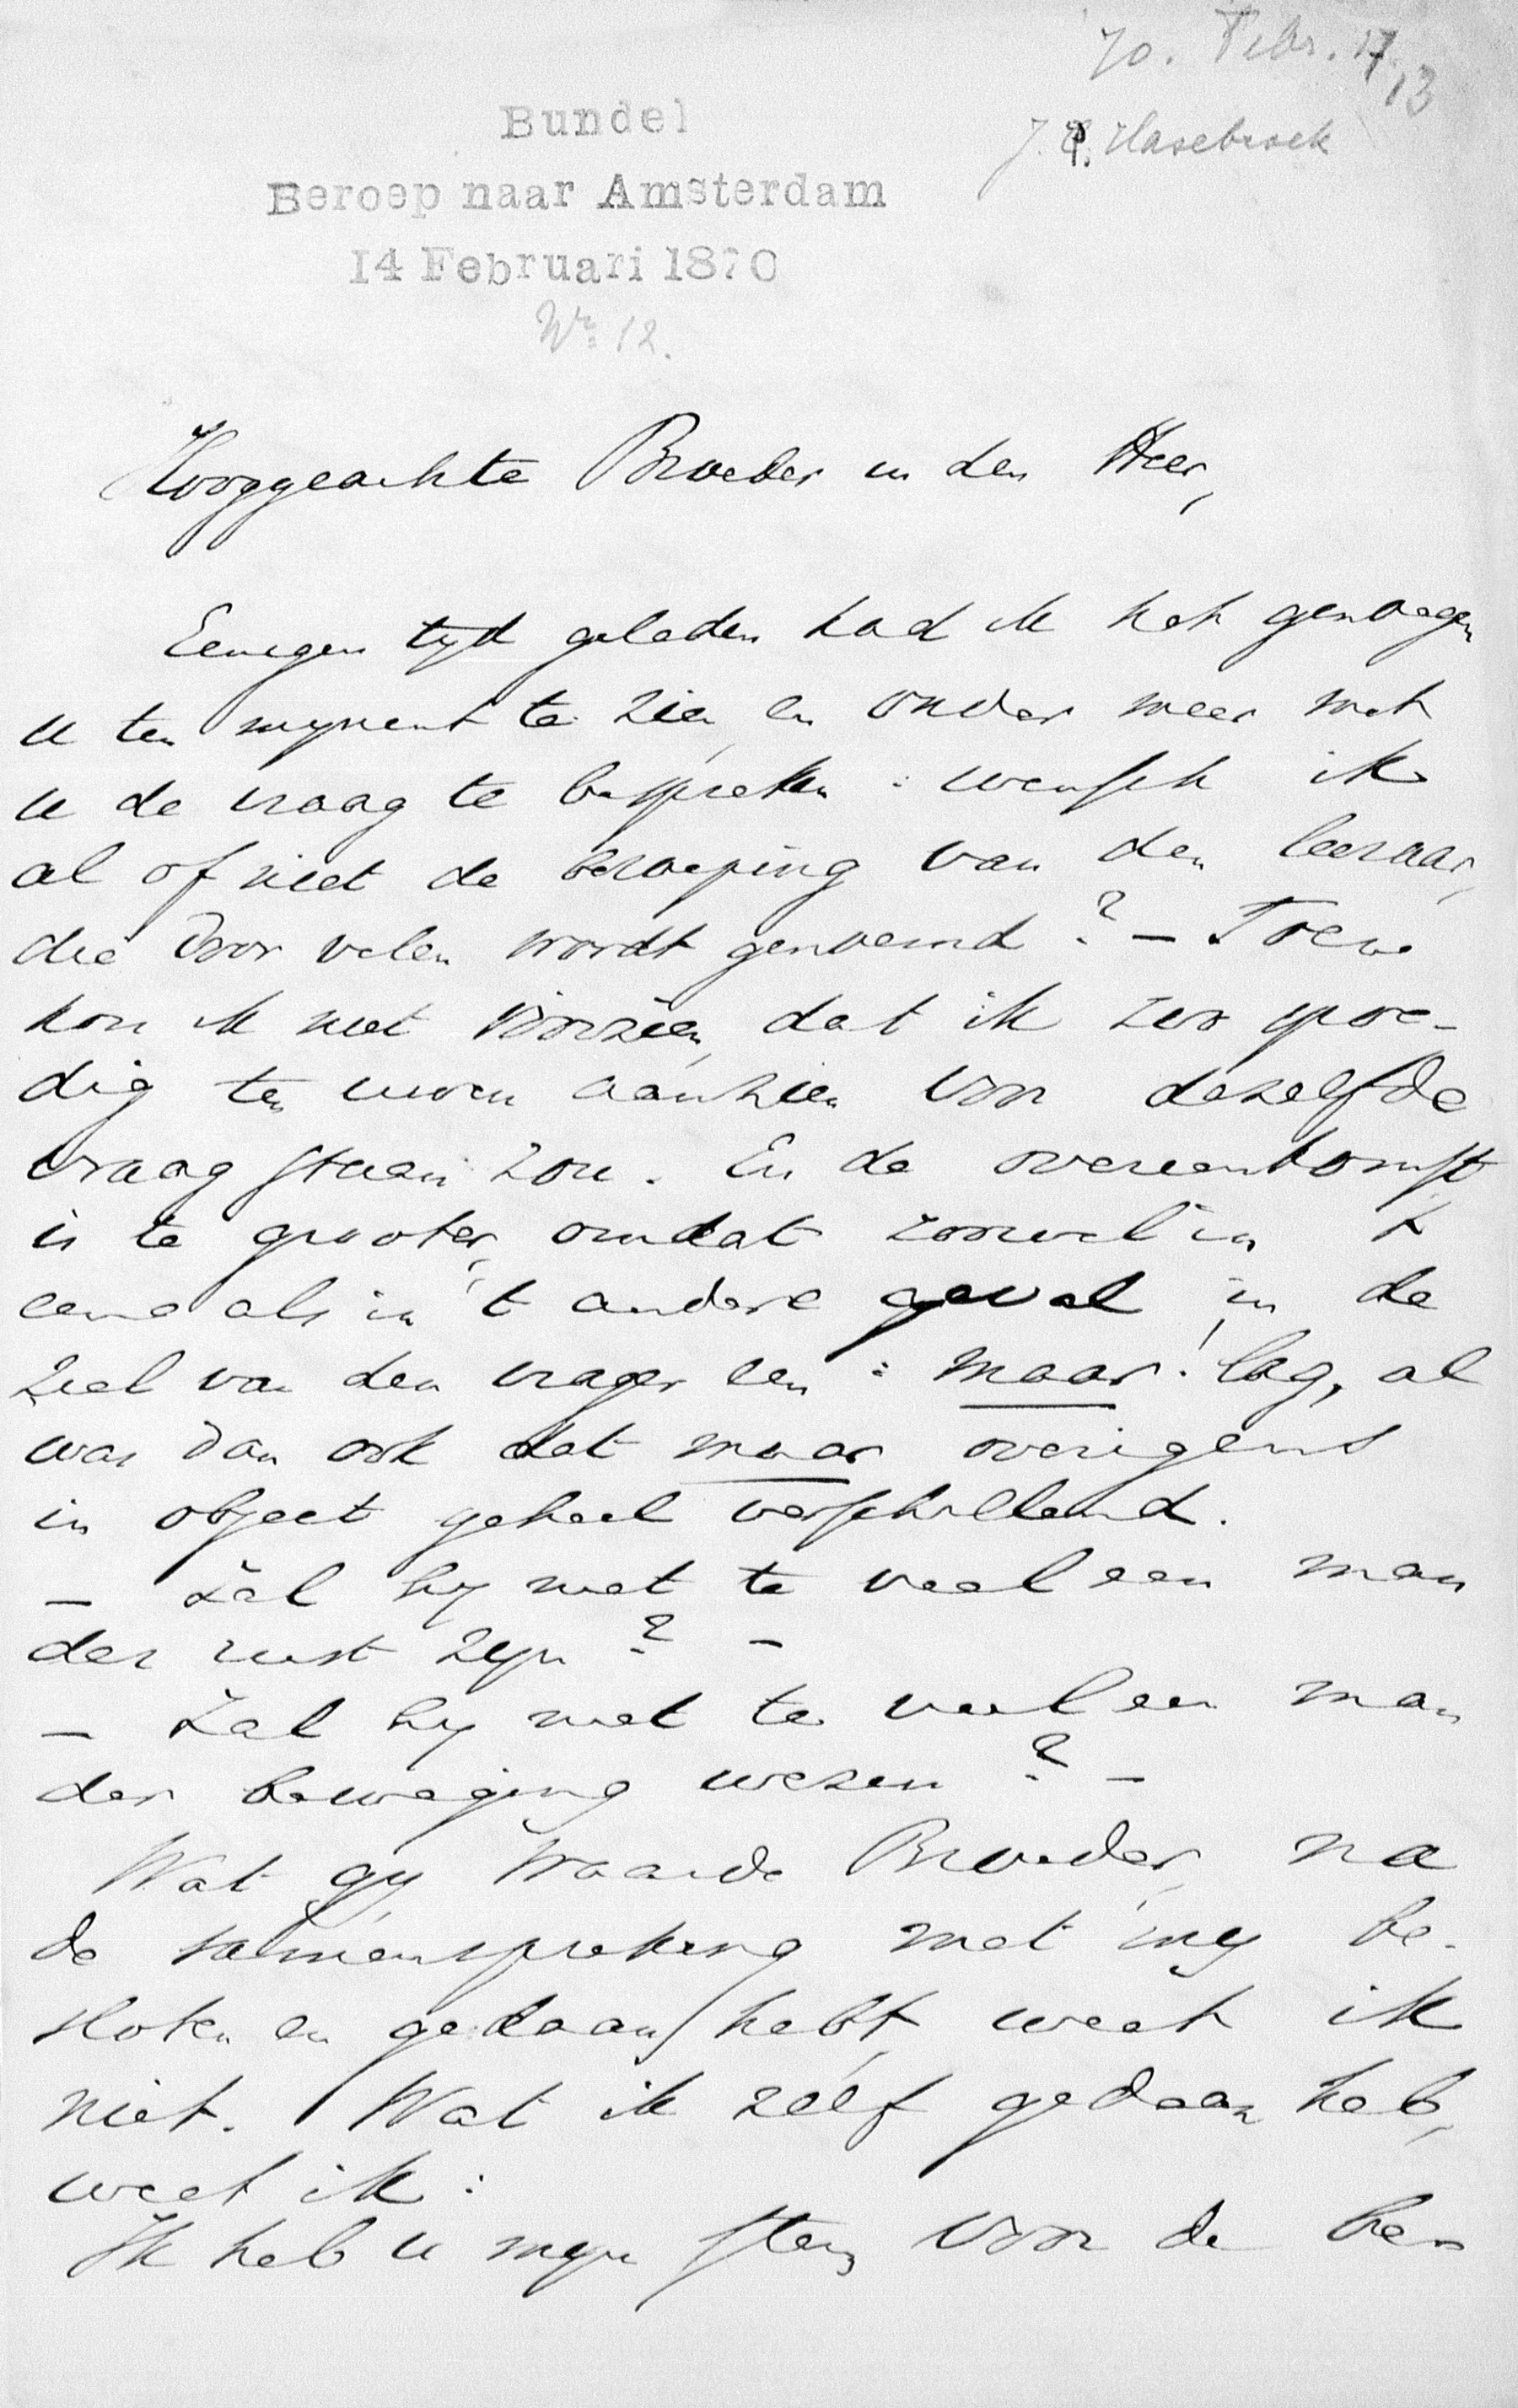 70. Febr. 17
13
J. P. Hasebroek
Bundel
Beroep naar Amsterdam
14 Februari 1870
No. 12.
Hooggeachte Broeder in den Heer,
Eenigen tijd geleden had ik het genoegen
u ten mijnent te zien, en onder meer met
u de vraag te bespreken: wensch ik
al of niet de beroeping van den leeraar,
die door velen wordt genoemd? – Toen
kon ik niet voorzien, dat ik zoo spoe-
dig ten uwen aanzien voor dezelfde
vraag staan zou. En de overeenkomst
is te grooter, omdat zoowel in 't
eene als in 't andere geval in de
ziel van den vrager een: maar! lag, al
was dan ook dat maar overigens
in object geheel verschillend.
– Zal hij niet te veel een man
der rust zijn? –
– Zal hij niet te veel een man
der beweging wezen? –
Wat gij, Waarde Broeder, na
de samenspreking met mij be-
sloten en gedaan hebt, weet ik
niet. Wat ik zelf gedaan heb,
weet ik:
Ik heb u mijn stem voor de be-